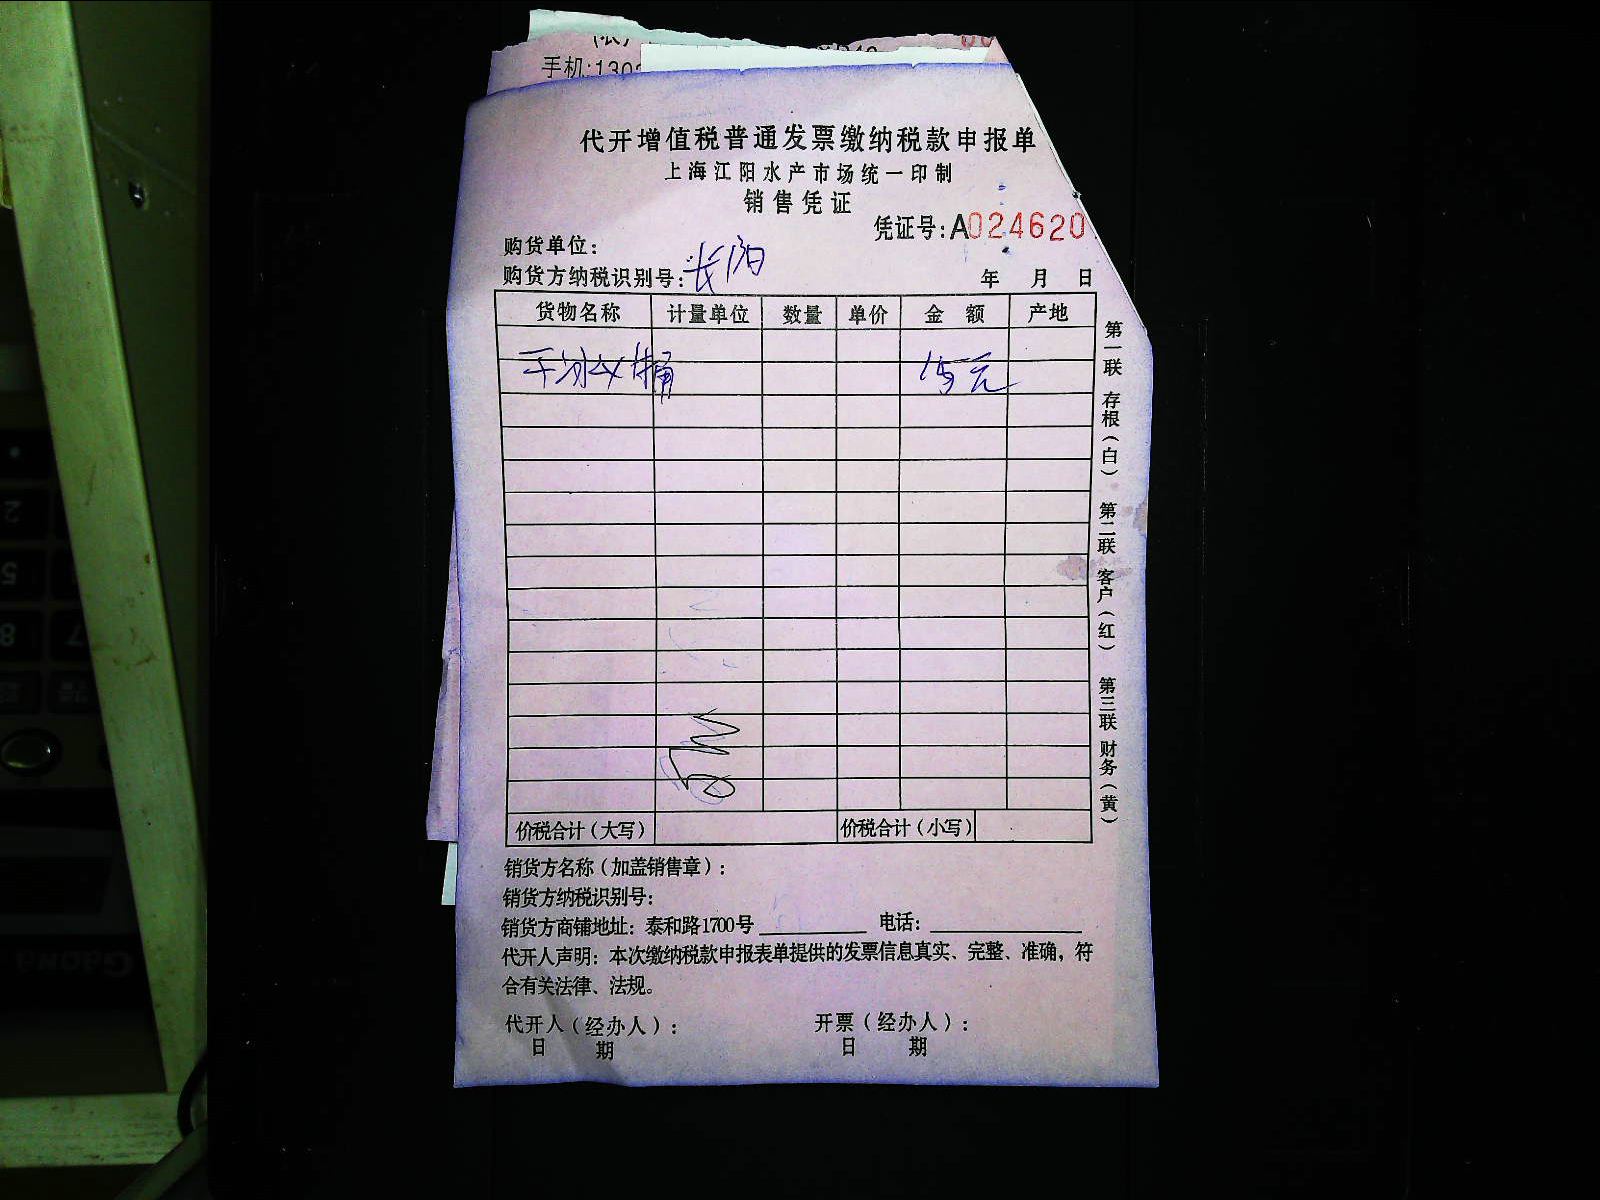 手机:1302
代开增值税普通发票缴纳税款申报单
上海江阳水产市场统一印制
销售凭证
凭证号:A024620
购货单位:
购货方纳税识别号: 长阳
年 月 日
货物名称 计量单位 数量 单价 金 额 产地
干冰 桶 15元
价税合计(大写) 价税合计(小写)
销货方名称(加盖销售章):
销货方纳税识别号:
销货方商铺地址: 泰和路1700号 电话:
代开人声明: 本次缴纳税款申报表单提供的发票信息真实、完整、准确, 符
合有关法律、法规。
代开人(经办人): 开票(经办人):
日 期 日 期
第一联 存根(白) 第二联 客户(红) 第三联 财务(黄)